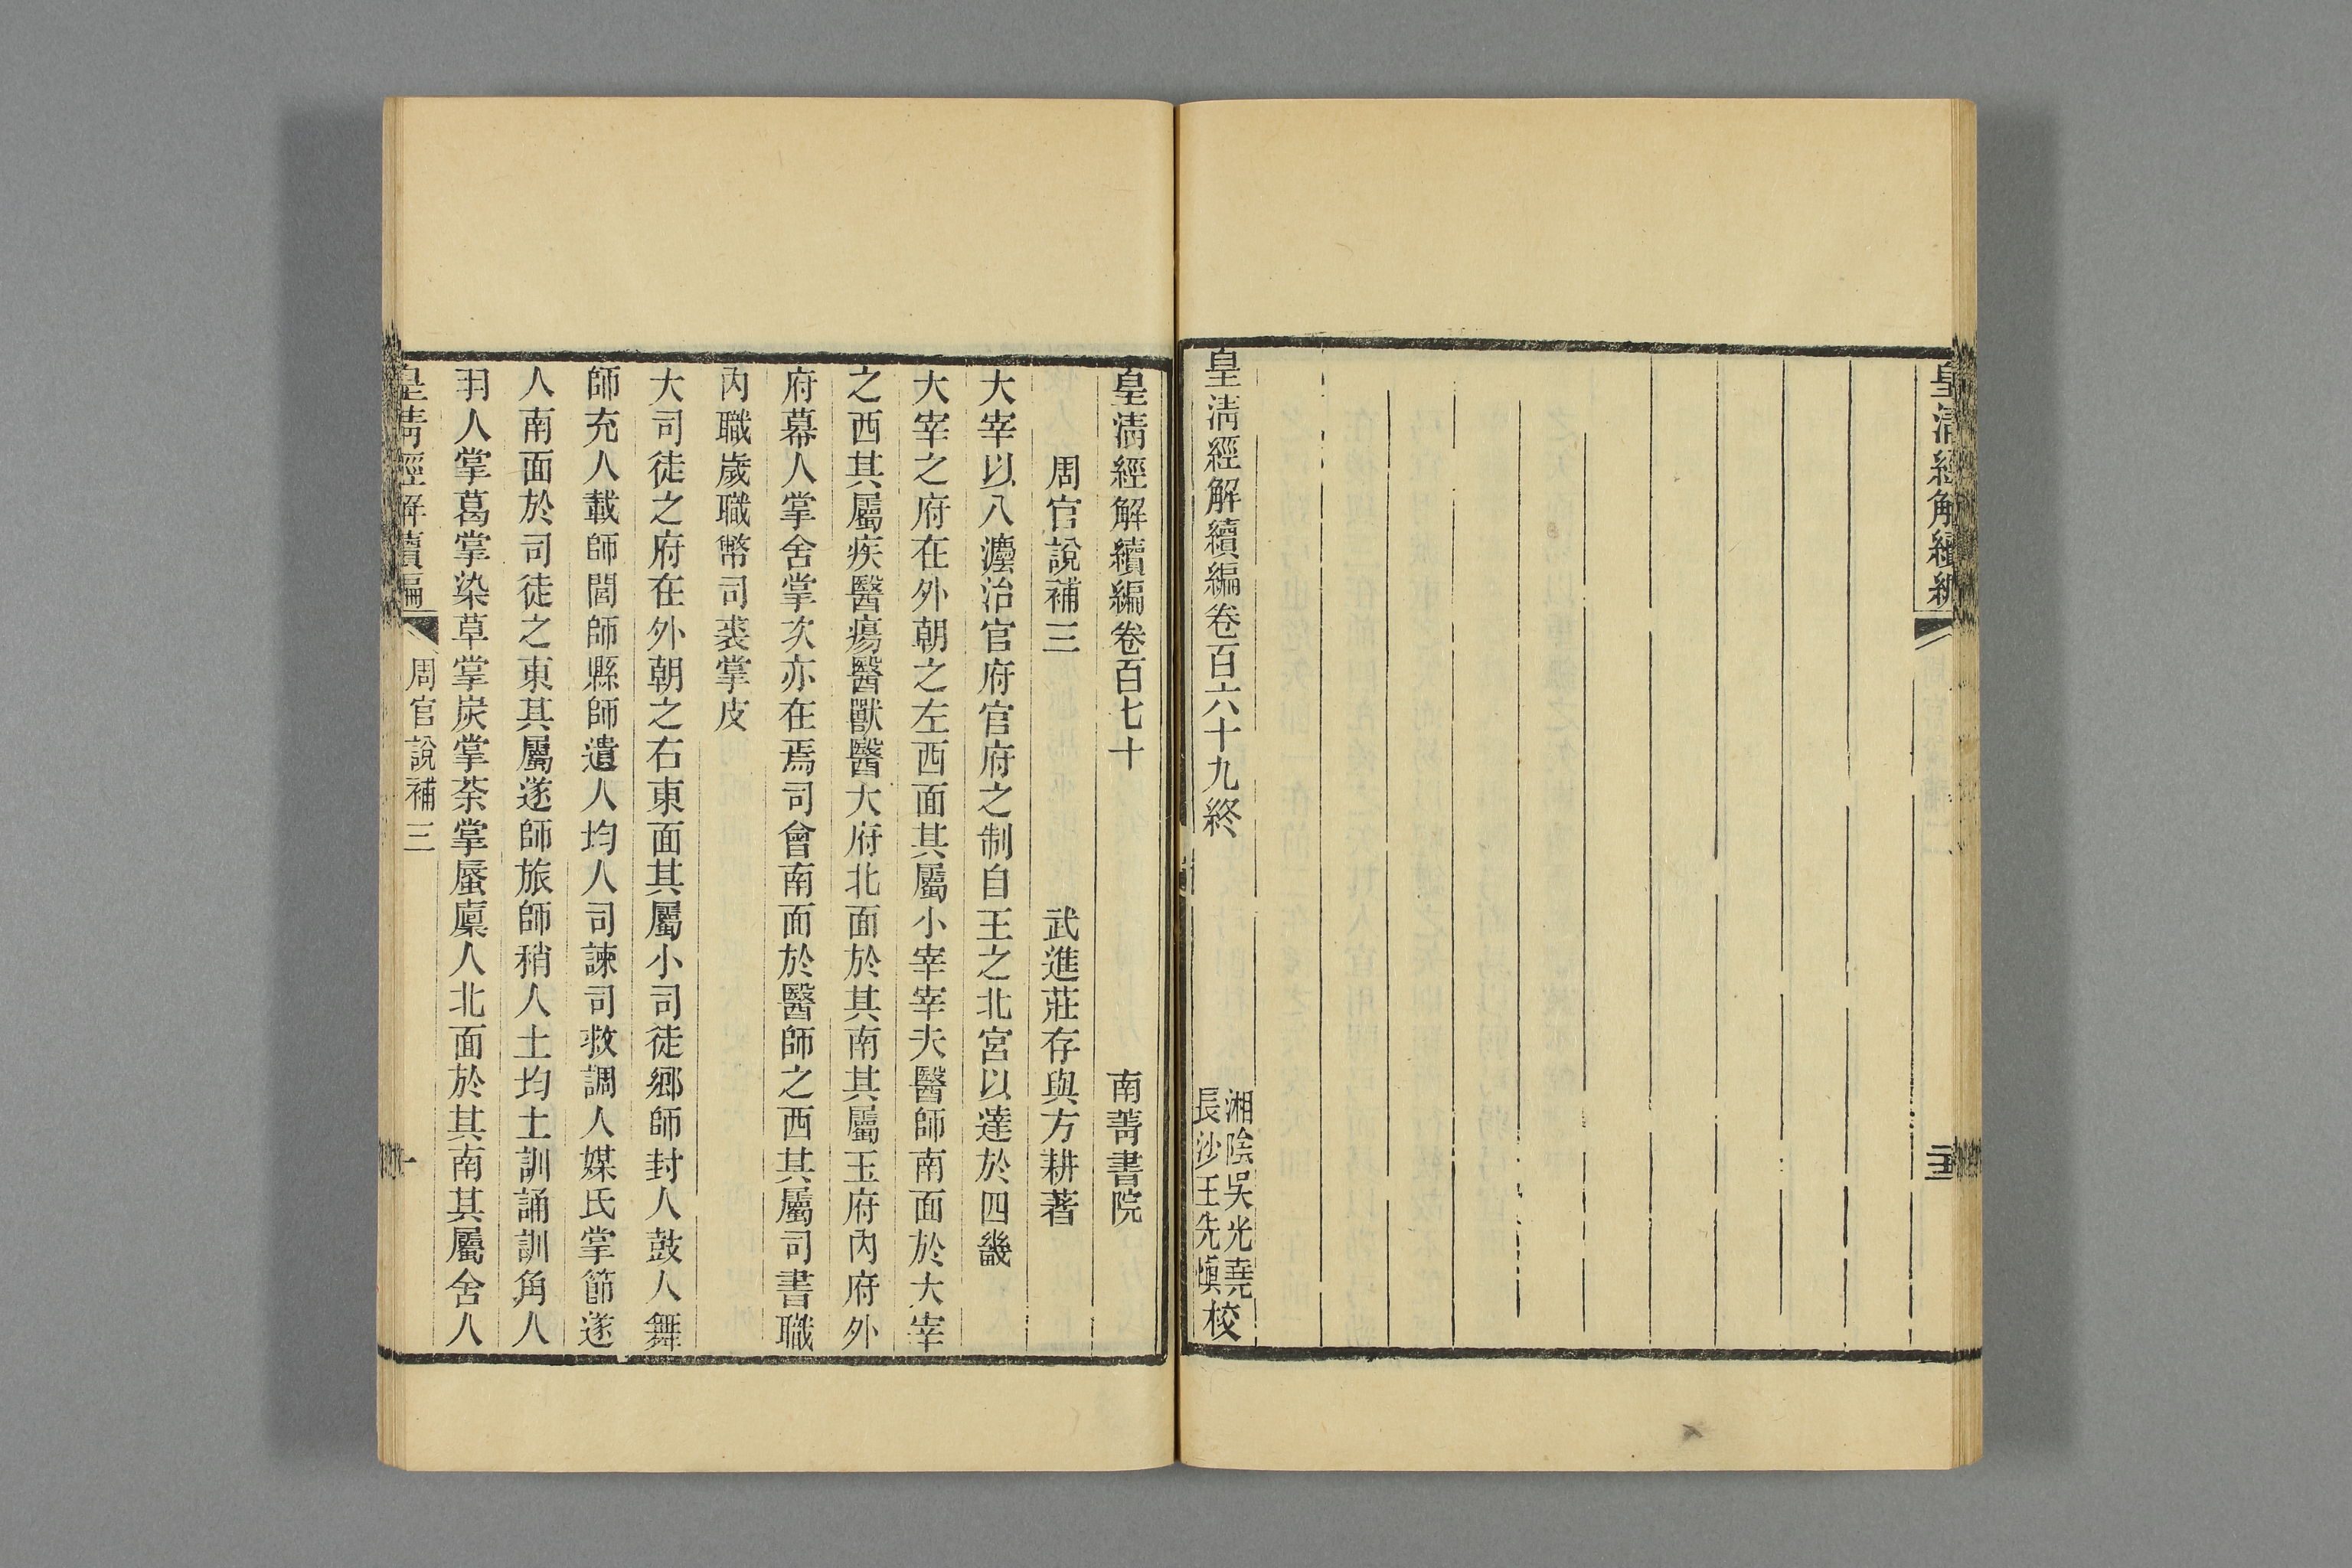 皇清經解續編
皇清經解續編卷百六十九終
湘陰吳光堯
長沙王先愼校
皇清經解續編卷百七十 南菁書院
周官說補三 武進莊存與方耕著
大宰以八灋治官府官府之制自王之北宮以達於四畿
大宰之府在外朝之左西面其屬小宰宰夫醫師南面於大宰
之西其屬疾醫瘍醫獸醫大府北面於其南其屬玉府內府外
府幕人掌舍掌次亦在焉司會南面於醫師之西其屬司書職
內職歲職幣司裘掌皮
大司徒之府在外朝之右東面其屬小司徒鄉師封人鼓人舞
師充人載師閭師縣師遺人均人司諫司救調人媒氏掌節遂
人南面於司徒之東其屬遂師旅師稍人土均土訓誦訓角人
羽人掌葛掌染草掌炭掌荼掌蜃廩人北面於其南其屬舍人
皇清經解續編 周官說補三 一